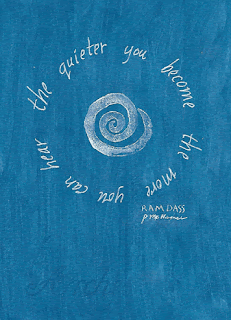 the quieter you become the more you can hear
RAM DASS